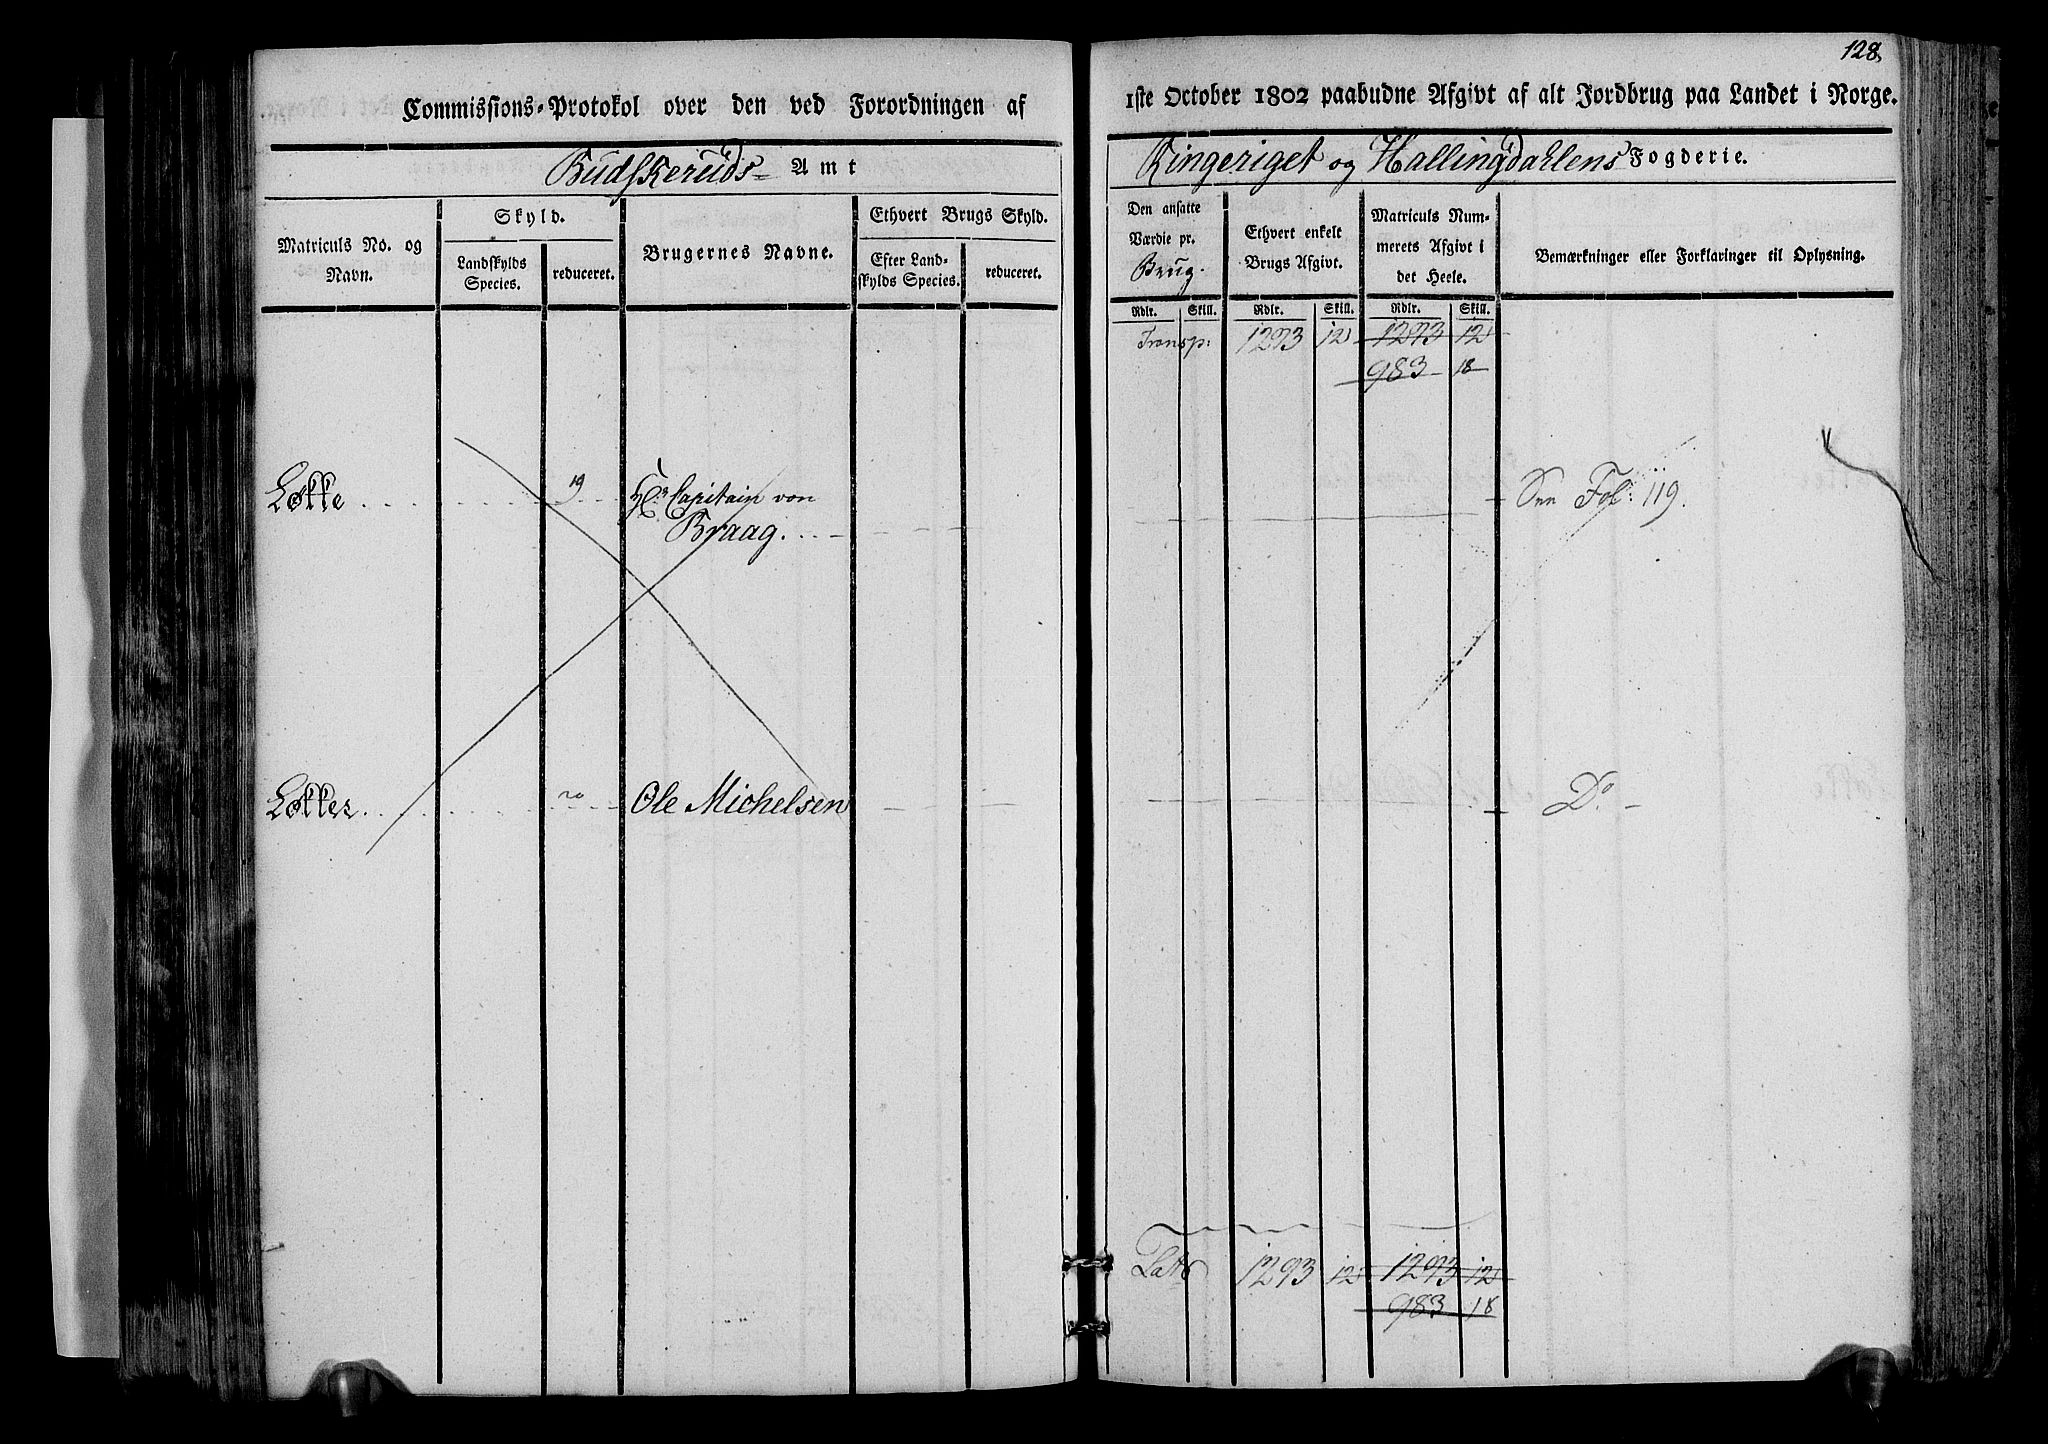 128.
Commissions-Protokol over den ved Forordningen af 1ste October 1802 paabudne Afgivt af alt Jordbrug paa Landet i Norge.
Budskeruds Amt
Ringeriget og Hallingdahlens Fogderie.
Matriculs No. og Navn.
Skyld.
Landskylds Species.
reduceret.
Brugernes Navne.
Ethvert Brugs Skyld.
Efter Landskylds Species.
reduceret.
Den ansatte Værdie pr. Brug.
Ethvert enkelt Brugs Afgivt.
Matriculs Nummerets Afgivt i det Heele.
Bemærkninger eller Forklaringer til Oplysning.
Rdlr. Skill. Rdlr. Skill. Rdlr. Skill.
Transp: 1293 12 1293 12
983 18
Løkke 19 Hr Capitain von Braag. See Fol: 119.
Løkker Ole Michelsen Do
Lats 1293 12 1293 12
983 18